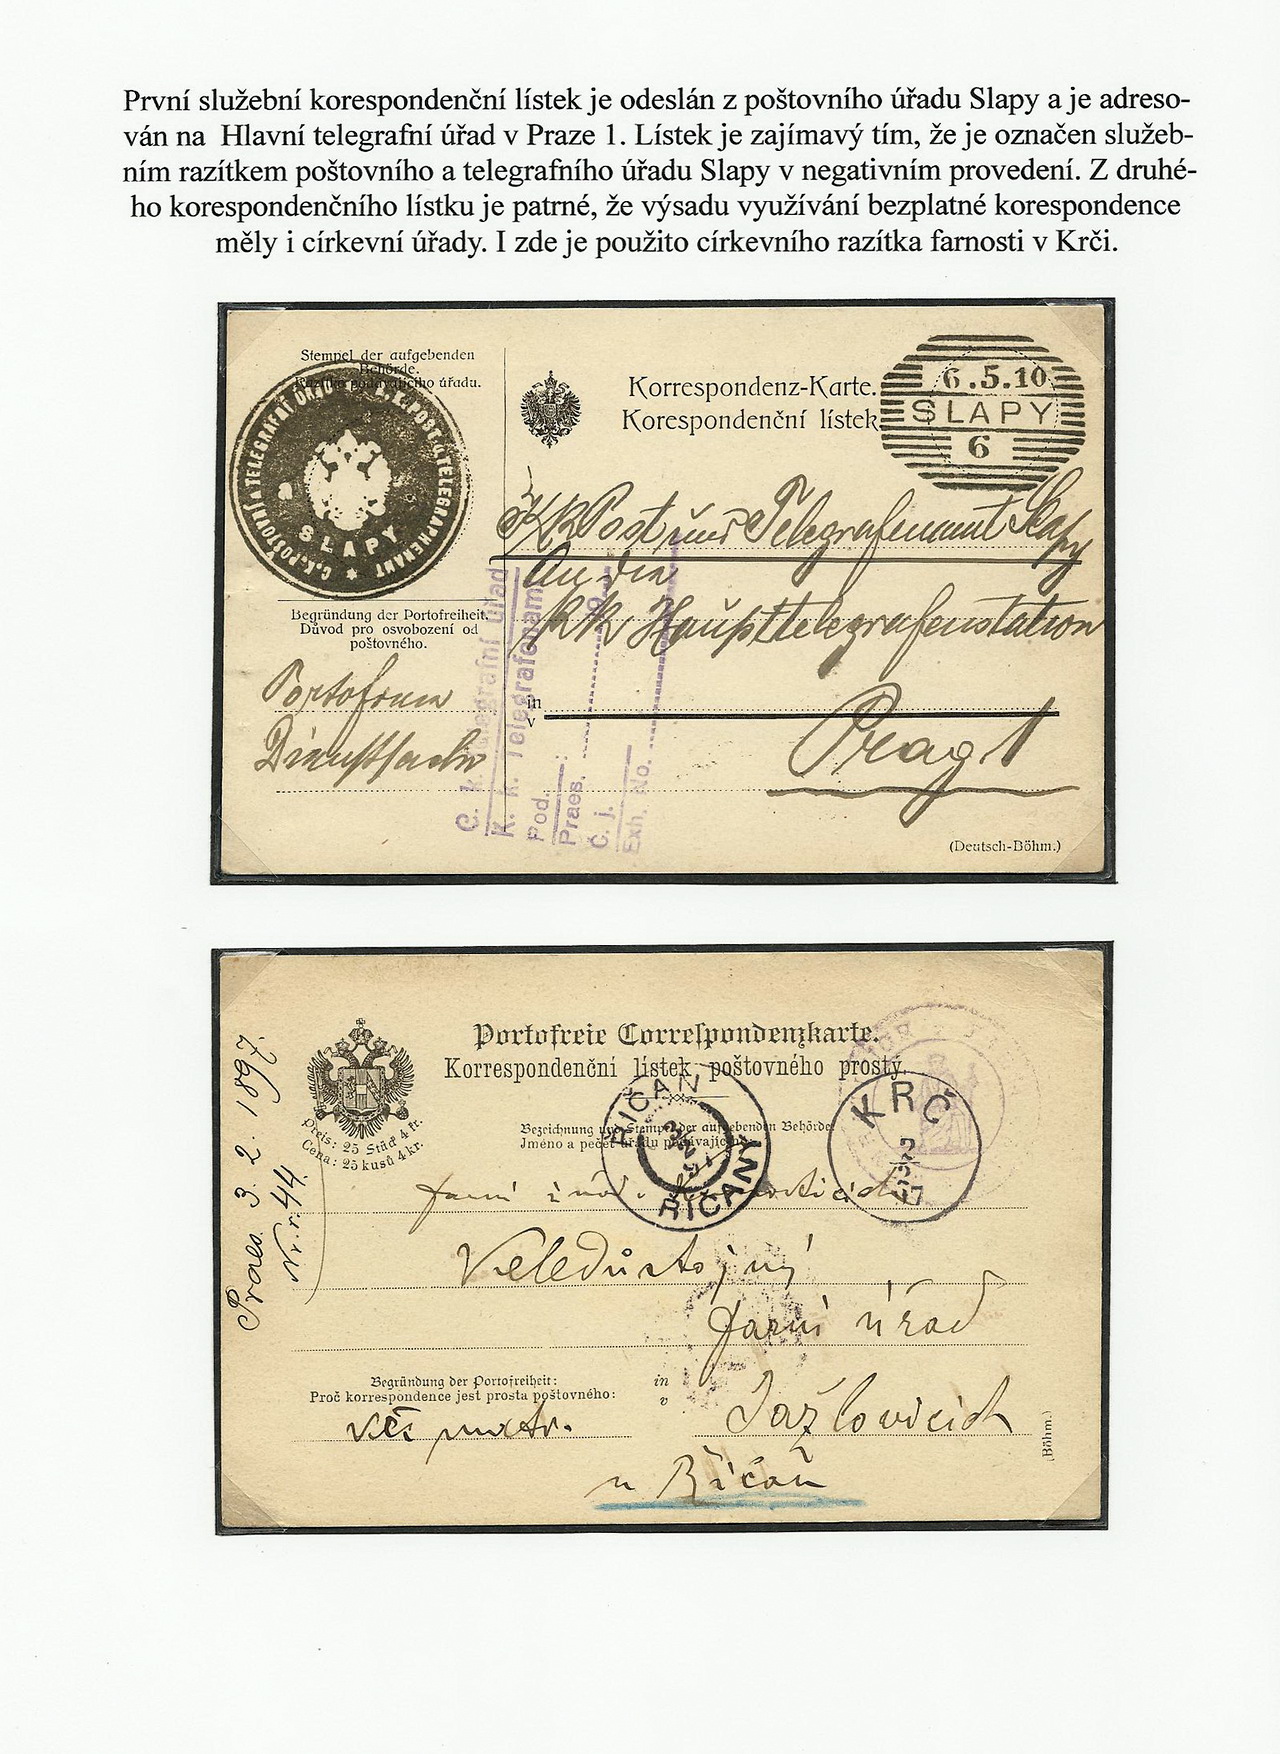 První služební korespondenční lístek je odeslán z poštovního úřadu Slapy a je adreso-
ván na Hlavní telegrafní úřad v Praze 1. Lístek je zajímavý tím, že je označen služeb-
ním razítkem poštovního a telegrafního úřadu Slapy v negativním provedení. Z druhé-
ho korespondenčního lístku je patrné, že výsadu využívání bezplatné korespondence
měly i církevní úřady. I zde je použito církevního razítka farnosti v Krči.
Stempel der aufgebenden
Behörde.
Razítko podávajícího úřadu.
C.K. POŠTOVNÍ A TELEGRAFNÍ ÚŘAD
K.K. POST & TELEGRAPHENAMT
SLAPY
Korrespondenz-Karte.
Korespondenční lístek
6.5.10
SLAPY
6
KK Post und Telegrafenamt Slapy
An die
KK Haupttelegrafenstation
Begründung der Portofreiheit.
Důvod pro osvobození od
poštovného.
Portofreie
Dienstsache
in
v
Prag 1
C. k. telegrafní úřad
K. k. Telegrafenamt
Pod.
Praes.
19
Č. j.
Exh. No.
(Deutsch-Böhm.)
Portofreie Correspondenzkarte.
Korrespondenční lístek poštovného prostý.
Preis: 25 Stück 4 kr.
Cena: 25 kusů 4 kr.
Praes. 3. 2. 1897.
Nr. r. 44.
Bezeichnung und Stempel der aufgebenden Behörde:
Jméno a pečeť úřadu podávajícího:
ŘIČAN
ŘÍČANY
KRČ
Farní úřad
Veledůstojný
Farní úřad
Begründung der Portofreiheit:
Proč korrespondence jest prosta poštovného:
in
v
věc matr.
Jažlovicích
u Říčan
(Böhm.)